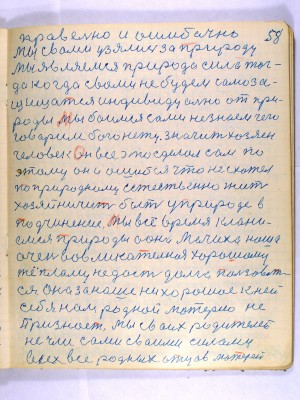 правелно и ошибачно 58
мы с вами узялис за природу
мы являемся природа сила тог-
да когда с вами не будем само за-
щищатся индивидуално от при-
роды Мы боимся сами не знаем чего
говарим бога нет, значит хозяен
человек Он все это сделал сам по
этому он и ошибся что не схотел
по природному естественно жить
хозяйничить быть у природе в
подчинение, Мы всё время клани-
емся природы а она Мачиха наша
очен вовликателная хорошому
тёплому, недость долга, ползоват-
ся Она за наше нихорошое к ней
себя нам родной матерю не
Признает. Мы своих родителей
не чли сами своими силами
всех все родных отцов матерей